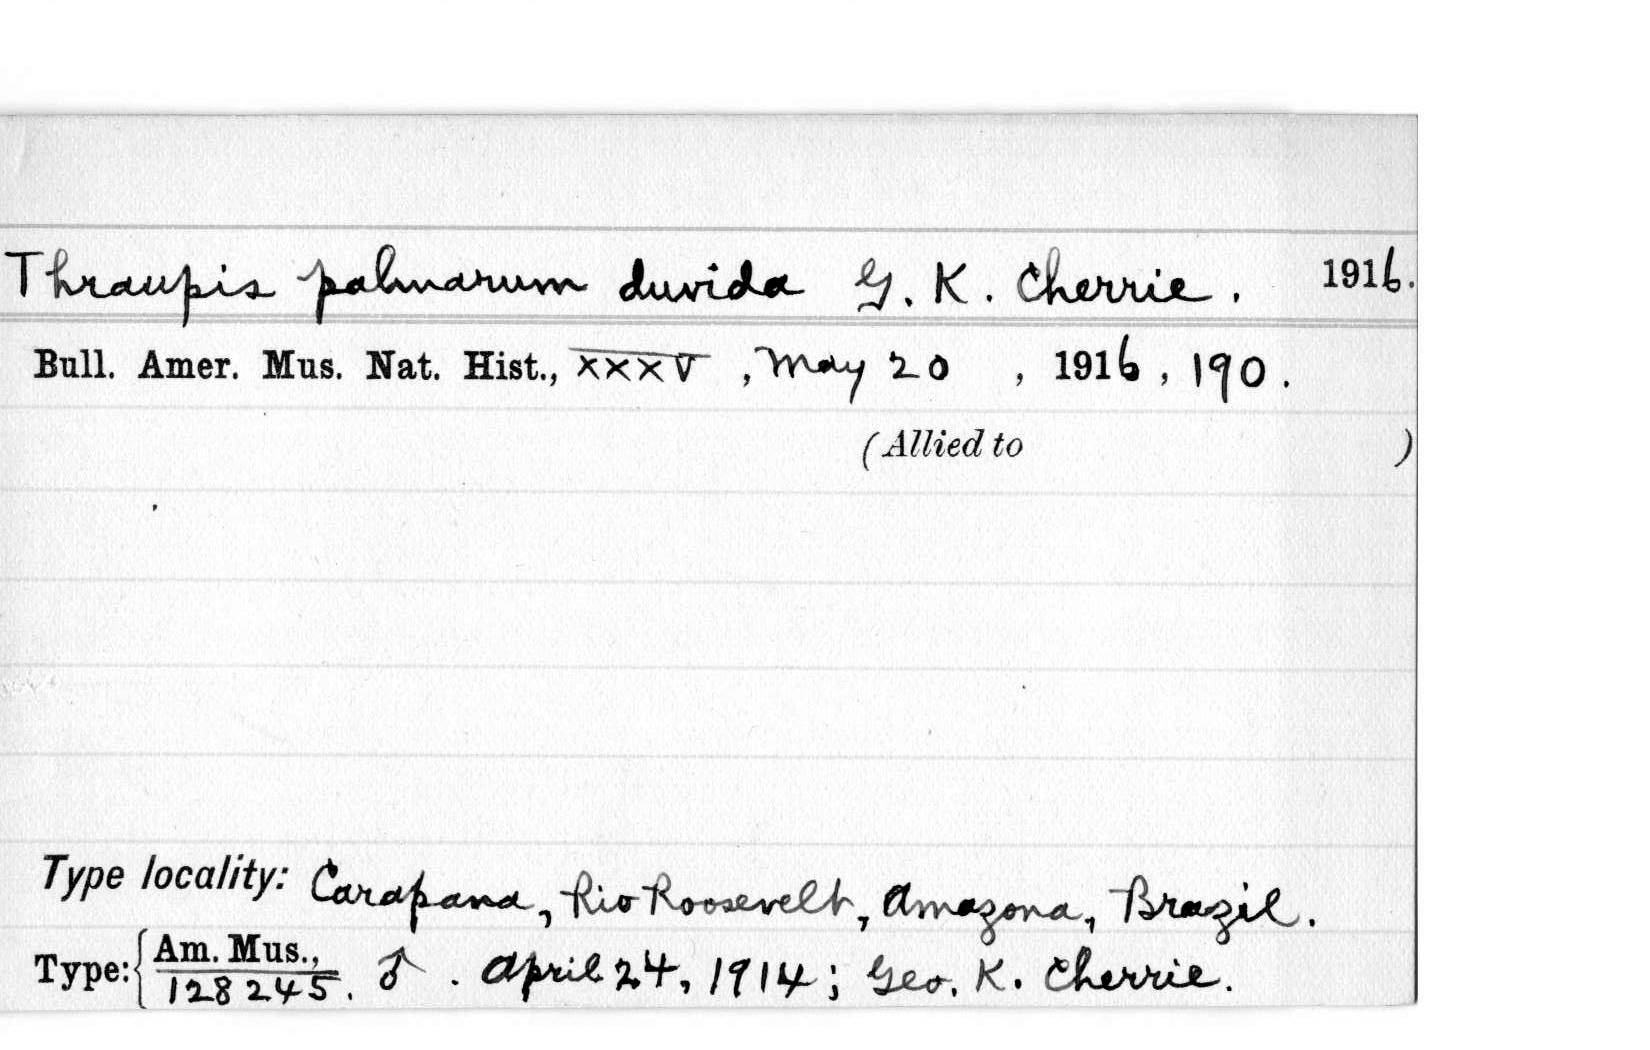 Thraupis palmarum duvida G. K. Cherrie. 1916.
Bull. Amer. Mus. Nat. Hist., XXXV, May 20, 1916, 190.
(Allied to )
Type locality: Carapana, Rio Roosevelt, Amazona, Brazil.
Type: { Am. Mus., 128245. ♂. April 24, 1914; Geo. K. Cherrie.